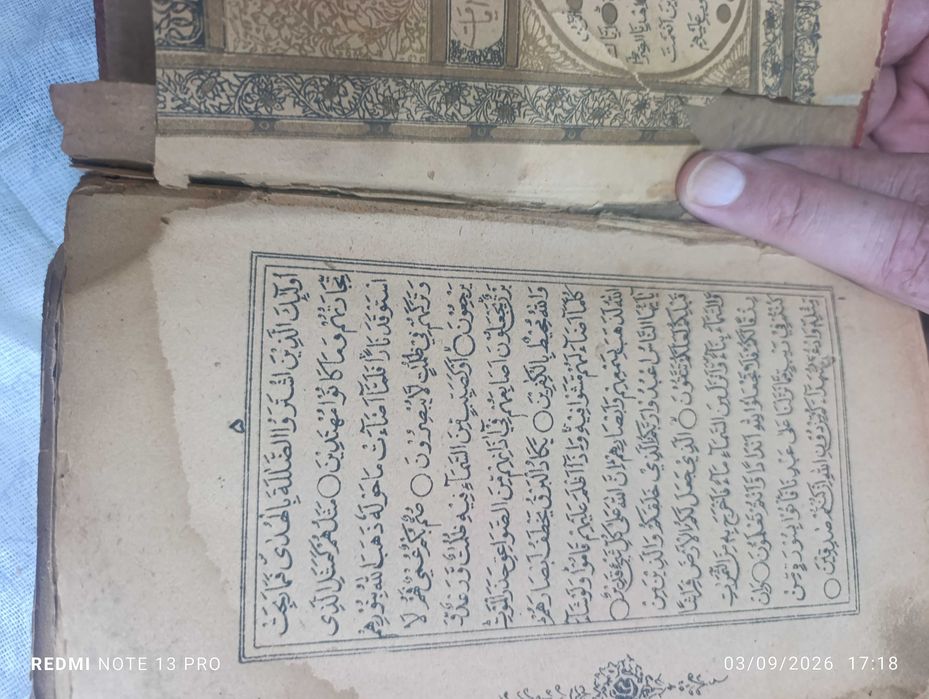 ۵
أُولَٰئِكَ الَّذِينَ اشْتَرَوُا الضَّلٰلَةَ بِالْهُدٰى فَمَا رَبِحَتْ
تِجَارَتُهُمْ وَمَا كَانُوا مُهْتَدِينَ ○ مَثَلُهُمْ كَمَثَلِ الَّذِي
اسْتَوْقَدَ نَارًا فَلَمَّا أَضَاءَتْ مَا حَوْلَهُ ذَهَبَ اللّٰهُ بِنُورِهِمْ
وَتَرَكَهُمْ فِي ظُلُمٰتٍ لَا يُبْصِرُونَ ○ صُمٌّ بُكْمٌ عُمْيٌ فَهُمْ لَا
يَرْجِعُونَ ○ أَوْ كَصَيِّبٍ مِنَ السَّمَاءِ فِيهِ ظُلُمٰتٌ وَرَعْدٌ
وَبَرْقٌ يَجْعَلُونَ أَصَابِعَهُمْ فِي آذَانِهِمْ مِنَ الصَّوَاعِقِ حَذَرَ الْمَوْتِ
وَاللّٰهُ مُحِيطٌ بِالْكٰفِرِينَ ○ يَكَادُ الْبَرْقُ يَخْطَفُ أَبْصَارَهُمْ
كُلَّمَا أَضَاءَ لَهُمْ مَشَوْا فِيهِ وَإِذَا أَظْلَمَ عَلَيْهِمْ قَامُوا وَلَوْ شَاءَ
اللّٰهُ لَذَهَبَ بِسَمْعِهِمْ وَأَبْصَارِهِمْ إِنَّ اللّٰهَ عَلٰى كُلِّ شَيْءٍ قَدِيرٌ ○
يٰأَيُّهَا النَّاسُ اعْبُدُوا رَبَّكُمُ الَّذِي خَلَقَكُمْ وَالَّذِينَ مِنْ
قَبْلِكُمْ لَعَلَّكُمْ تَتَّقُونَ ○ الَّذِي جَعَلَ لَكُمُ الْأَرْضَ فِرَاشًا
وَالسَّمَاءَ بِنَاءً وَأَنْزَلَ مِنَ السَّمَاءِ مَاءً فَأَخْرَجَ بِهِ مِنَ الثَّمَرٰتِ
رِزْقًا لَكُمْ فَلَا تَجْعَلُوا لِلّٰهِ أَنْدَادًا وَأَنْتُمْ تَعْلَمُونَ ○ وَإِنْ
كُنْتُمْ فِي رَيْبٍ مِمَّا نَزَّلْنَا عَلٰى عَبْدِنَا فَأْتُوا بِسُورَةٍ مِنْ
مِثْلِهِ وَادْعُوا شُهَدَاءَكُمْ مِنْ دُونِ اللّٰهِ إِنْ كُنْتُمْ صٰدِقِينَ ○
REDMI NOTE 13 PRO
03/09/2026 17:18